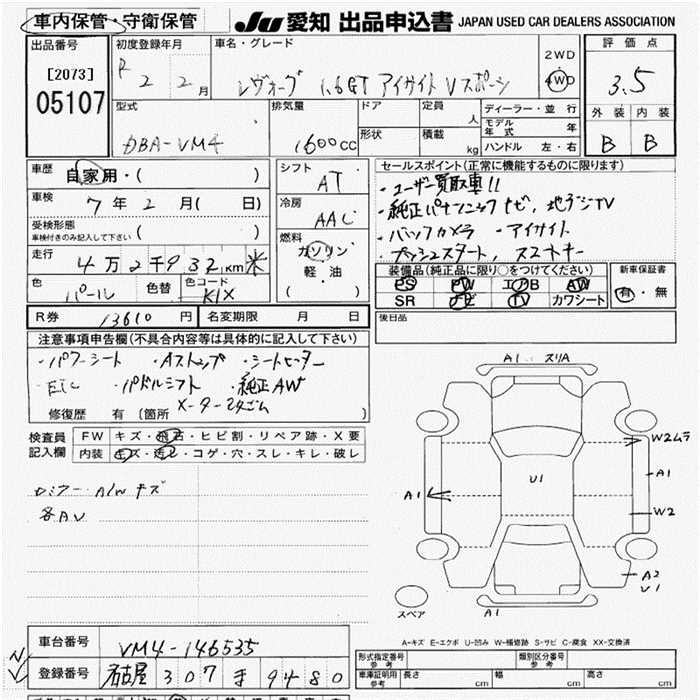 車内保管・守衛保管
JU 愛知 出品申込書 JAPAN USED CAR DEALERS ASSOCIATION
出品番号
[2073]
05107
初度登録年月
R 2 2 月
車名・グレード
レヴォーグ 1.6GT アイサイト Vスポーツ
2WD
4WD
評価点
3.5
外装 内装
B B
型式
DBA-VM4
排気量
1600cc
ドア
形状
定員 人
積載 kg
ディーラー・並行
モデル年式 年
ハンドル 左・右
車歴 自家用・( )
車検 7年2月( 日)
受検形態
車検付きのみ記入して下さい ( )
走行 4万2千932km 米
色 パール 色替 色コード K1X
シフト AT
冷房 AAC
燃料
ガソリン
軽・油
( )
セールスポイント(正常に機能するものに限ります)
・ユーザー買取車!!
・純正パナソニックナビ、地デジTV
・バックカメラ ・アイサイト
・プッシュスタート, スマートキー
装備品(純正品に限り○をつけてください)
PS PW エアB AW
SR ナビ TV カワシート
新車保証書
有・無
R券 13610円 名変期限 月 日
後日品
注意事項申告欄(不具合内容等は具体的に記入して下さい)
・パワーシート ・Aストップ ・シートヒーター
・ETC ・パドルシフト ・純正AW
修復歴 有 (箇所 )
検査員記入欄
FW キズ・飛石・ヒビ割・リペア跡・X要
内装 キズ・汚レ・コゲ・穴・スレ・キレ・破レ
A/W キズ
各AU
A1 スリA
W2ムラ
A1
U1
A1
W2
A2
U1
A1
スペア
A-キズ E-エクボ U-凹み W-補修跡 S-サビ C-腐食 XX-交換済
車台番号 VM4-146535
登録番号 名古屋 307 ま 9480
形式指定番号 参考
類別区分番号 参考
車庫証明用 参考 長さ cm 幅 cm 高さ cm